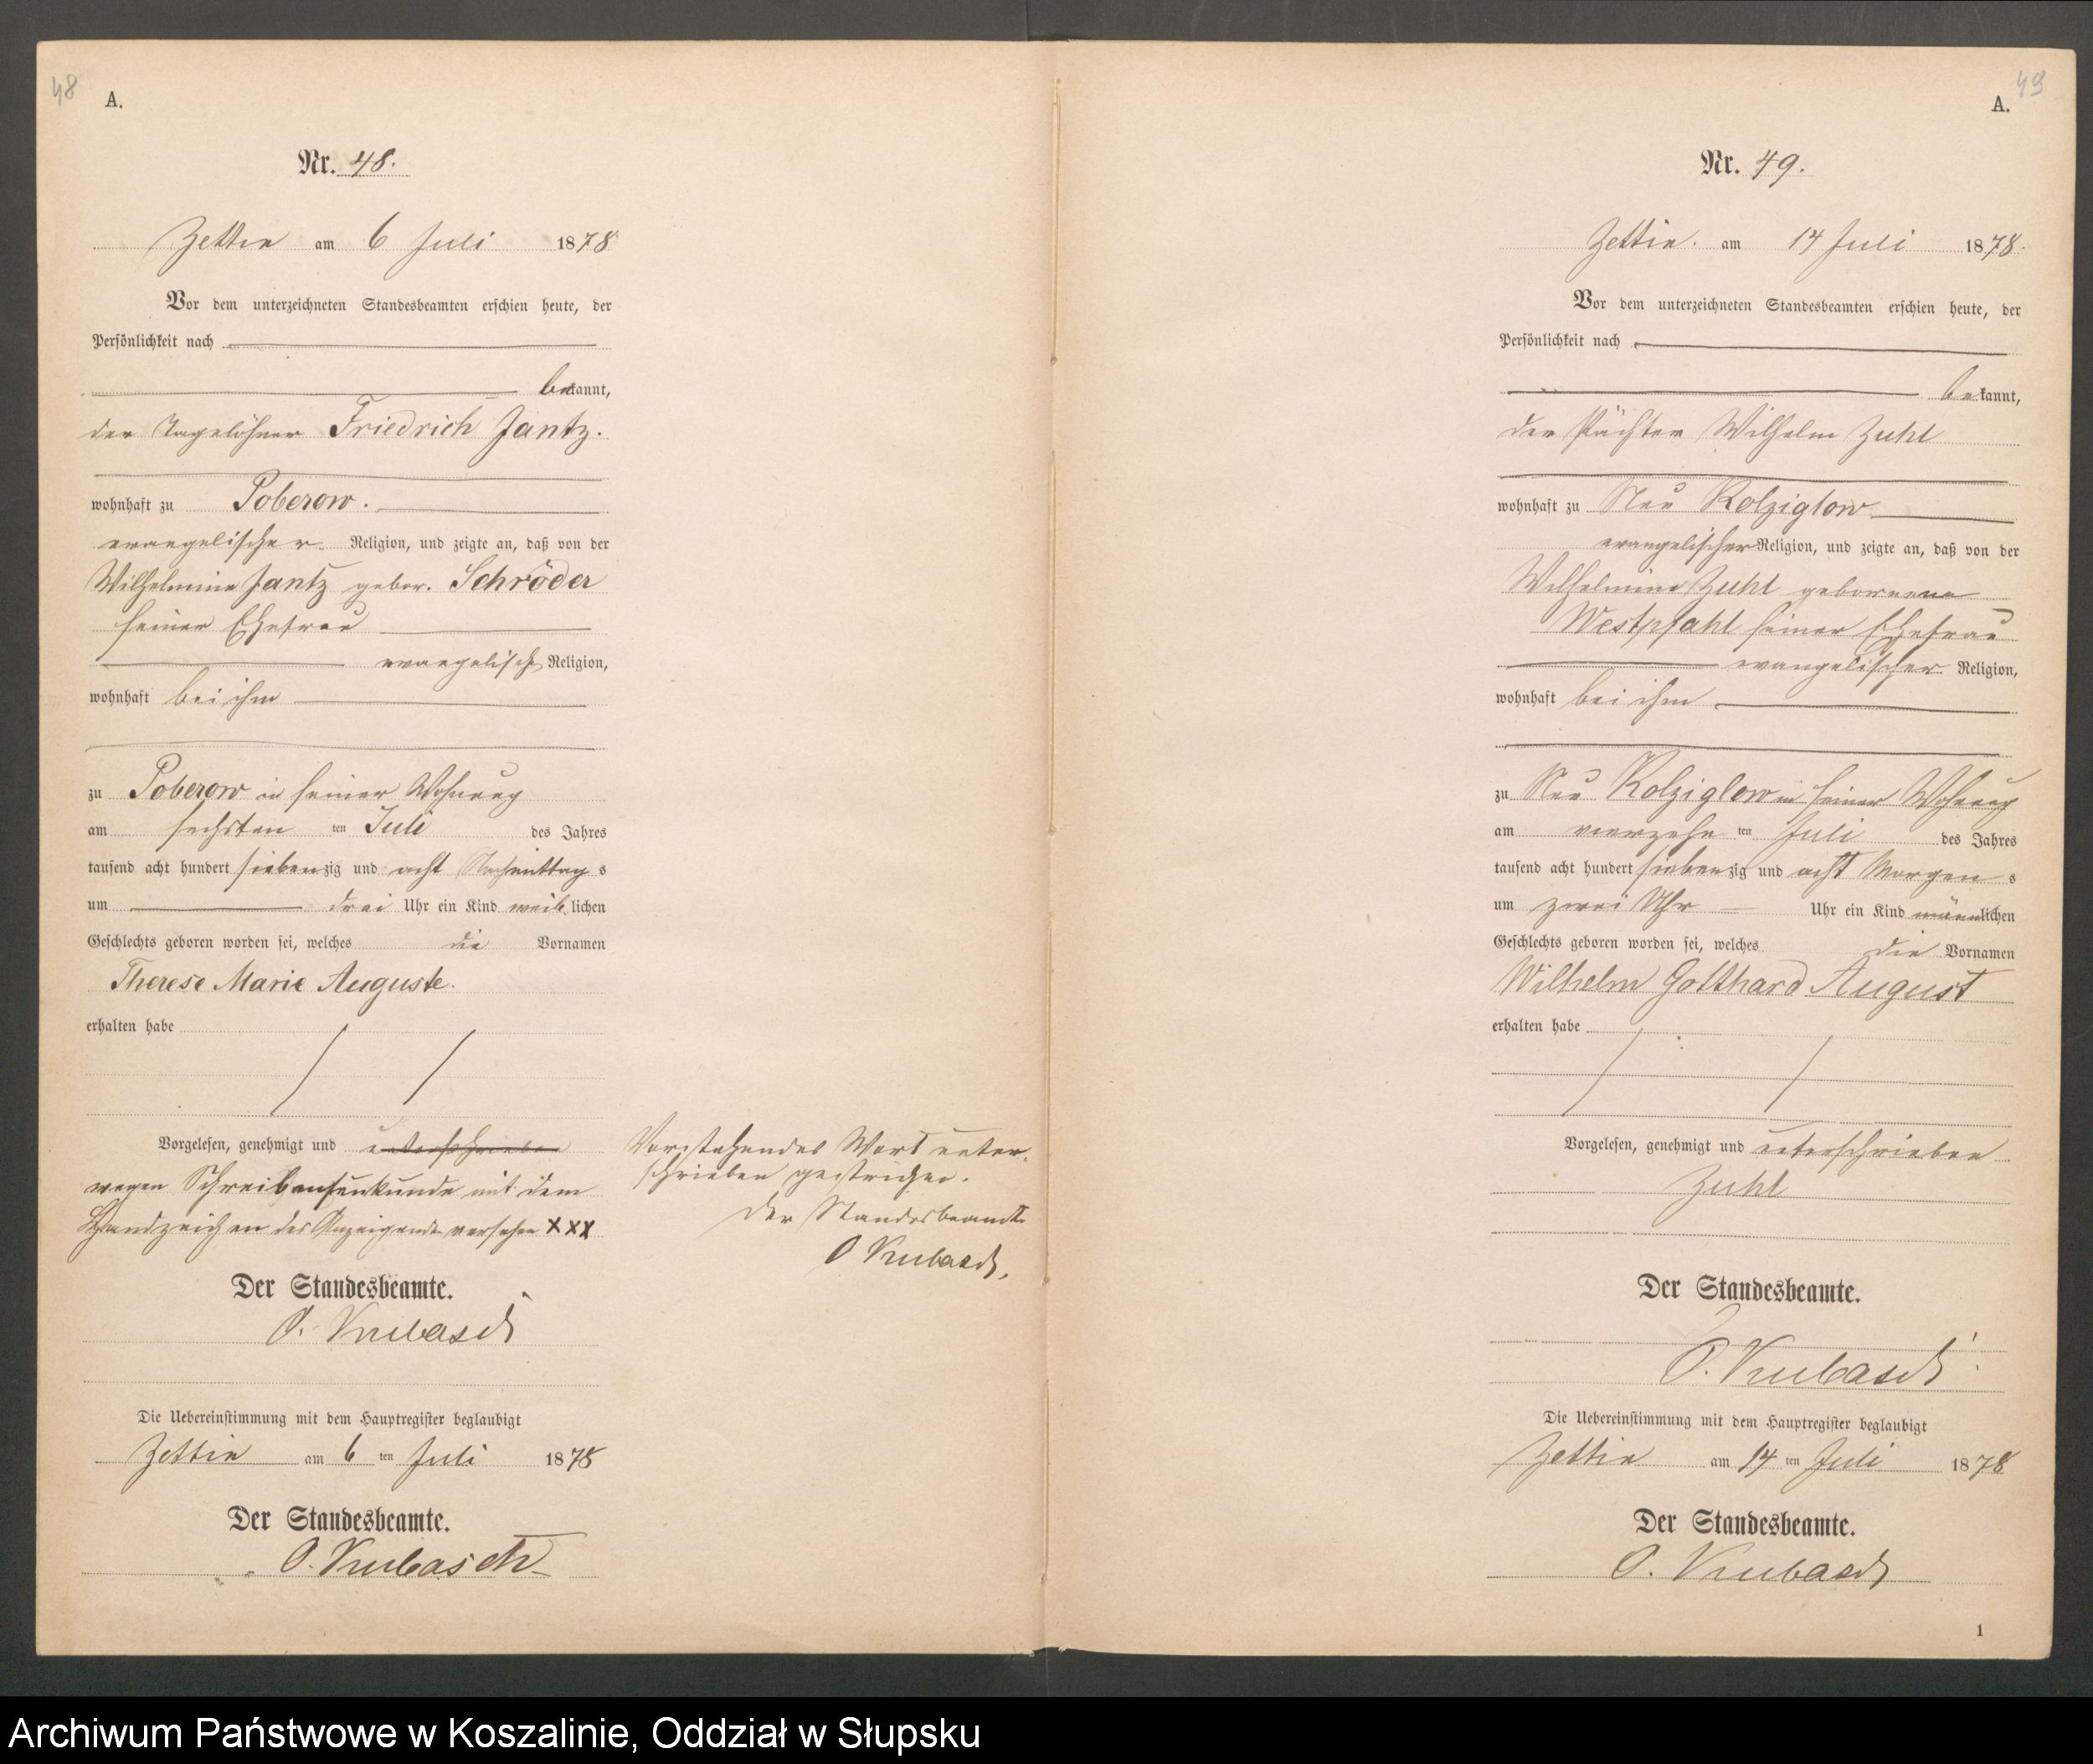 48
A.
Nr. 48.
Zettin am 6 Juli 1878
Vor dem unterzeichneten Standesbeamten erschien heute, der
Persönlichkeit nach
bekannt,
der Tagelöhner Friedrich Jantz.
wohnhaft zu Poberow.
evangelischer Religion, und zeigte an, daß von der
Wilhelmine Jantz gebor. Schröder
seiner Ehefrau
evangelische Religion,
wohnhaft bei ihm
zu Poberow in seiner Wohnung
am sechsten ten Juli des Jahres
tausend acht hundert siebenzig und acht Nachmittags
um drei Uhr ein Kind weiblichen
Geschlechts geboren worden sei, welches die Vornamen
Therese Marie Auguste.
erhalten habe
Vorgelesen, genehmigt und unterschrieben
wegen Schreibensunkunde mit dem
Handzeichen des Anzeigende versehen XXX
Vorstehendes Wort unter-
schrieben gestrichen.
Der Standesbeamte
O Kubasch.
Der Standesbeamte.
O. Kubasch
Die Uebereinstimmung mit dem Hauptregister beglaubigt
Zettin am 6 ten Juli 1878
Der Standesbeamte.
O. Kubasch
49
A.
Nr. 49.
Zettin. am 14 Juli 1878.
Vor dem unterzeichneten Standesbeamten erschien heute, der
Persönlichkeit nach
bekannt,
der Pächter Wilhelm Zuhl
wohnhaft zu Neu Kolziglow
evangelischer Religion, und zeigte an, daß von der
Wilhelmine Zuhl geborenene
Westpfahl seiner Ehefrau
evangelischer Religion,
wohnhaft bei ihm
zu Neu Kolziglow in seiner Wohnung
am vierzehn ten Juli des Jahres
tausend acht hundert siebenzig und acht Morgens
um zwei Uhr Uhr ein Kind männlichen
Geschlechts geboren worden sei, welches die Vornamen
Wilhelm Gotthard August
erhalten habe
Vorgelesen, genehmigt und unterschrieben
Zuhl
Der Standesbeamte.
O. Kubasch
Die Uebereinstimmung mit dem Hauptregister beglaubigt
Zettin am 14 ten Juli 1878
Der Standesbeamte.
O. Kubasch
1
Archiwum Państwowe w Koszalinie, Oddział w Słupsku